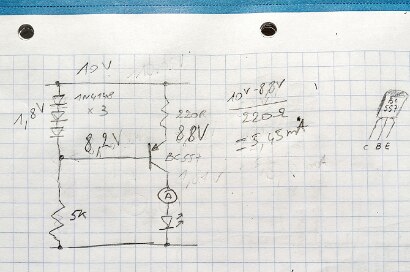 10V
1N4148
x 3
1,8V
220Ω
8,2V
8,8V
BC557
A
5K
10V-8,8V
220Ω
=5,45mA
BC
557
C B E